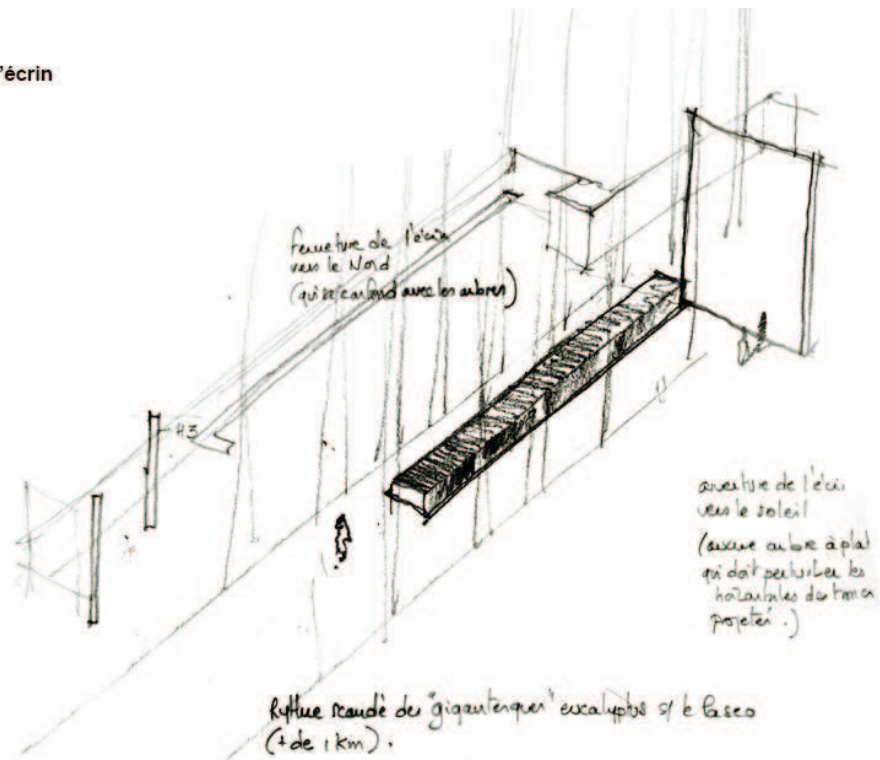 'écrin
fermeture de l'écrin
vers le Nord
(qui se confond avec les arbres)
H3
ouverture de l'écrin
vers le soleil
(aucune ombre à plat
qui doit perturber les
horizontales des
projetés.)
Rythme scandé des "gigantesques" eucalyptus s/ le Paseo
(+ de 1 km).